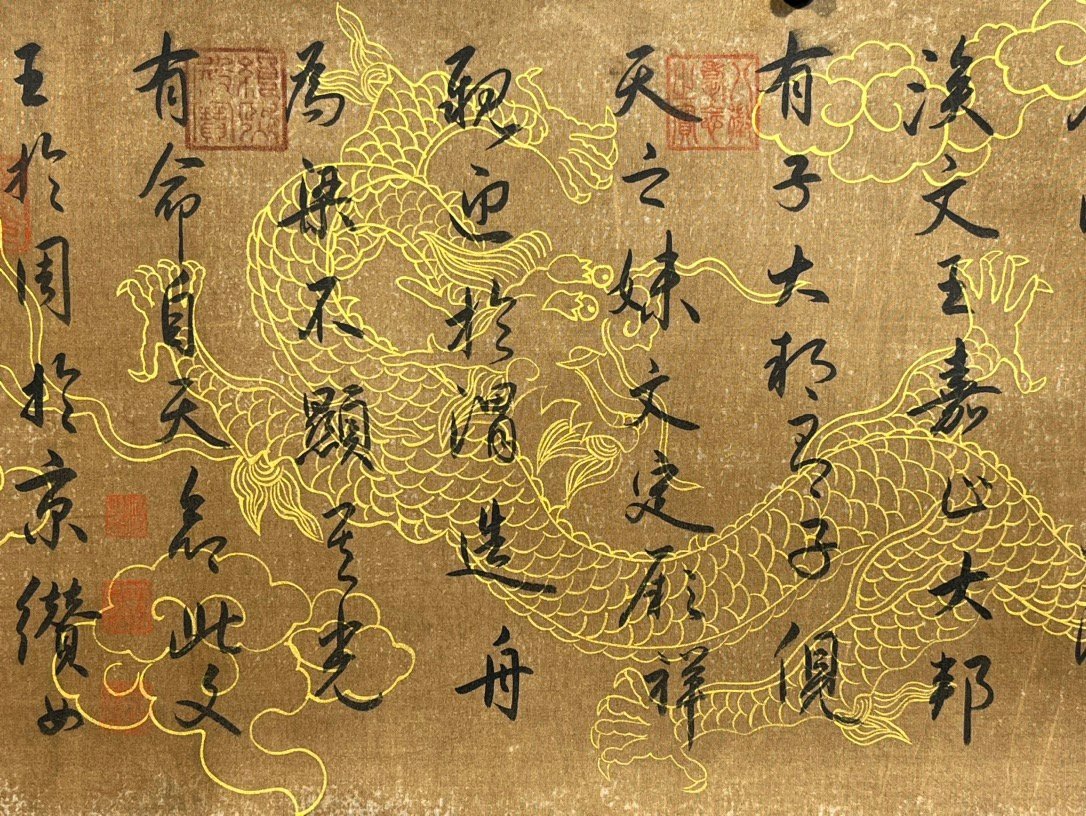 涘文王嘉止大邦
有子大邦有子俔
天之妹文定厥祥
親迎於渭造舟
為梁不顯其光
有命自天命此文
王於周於京纘女